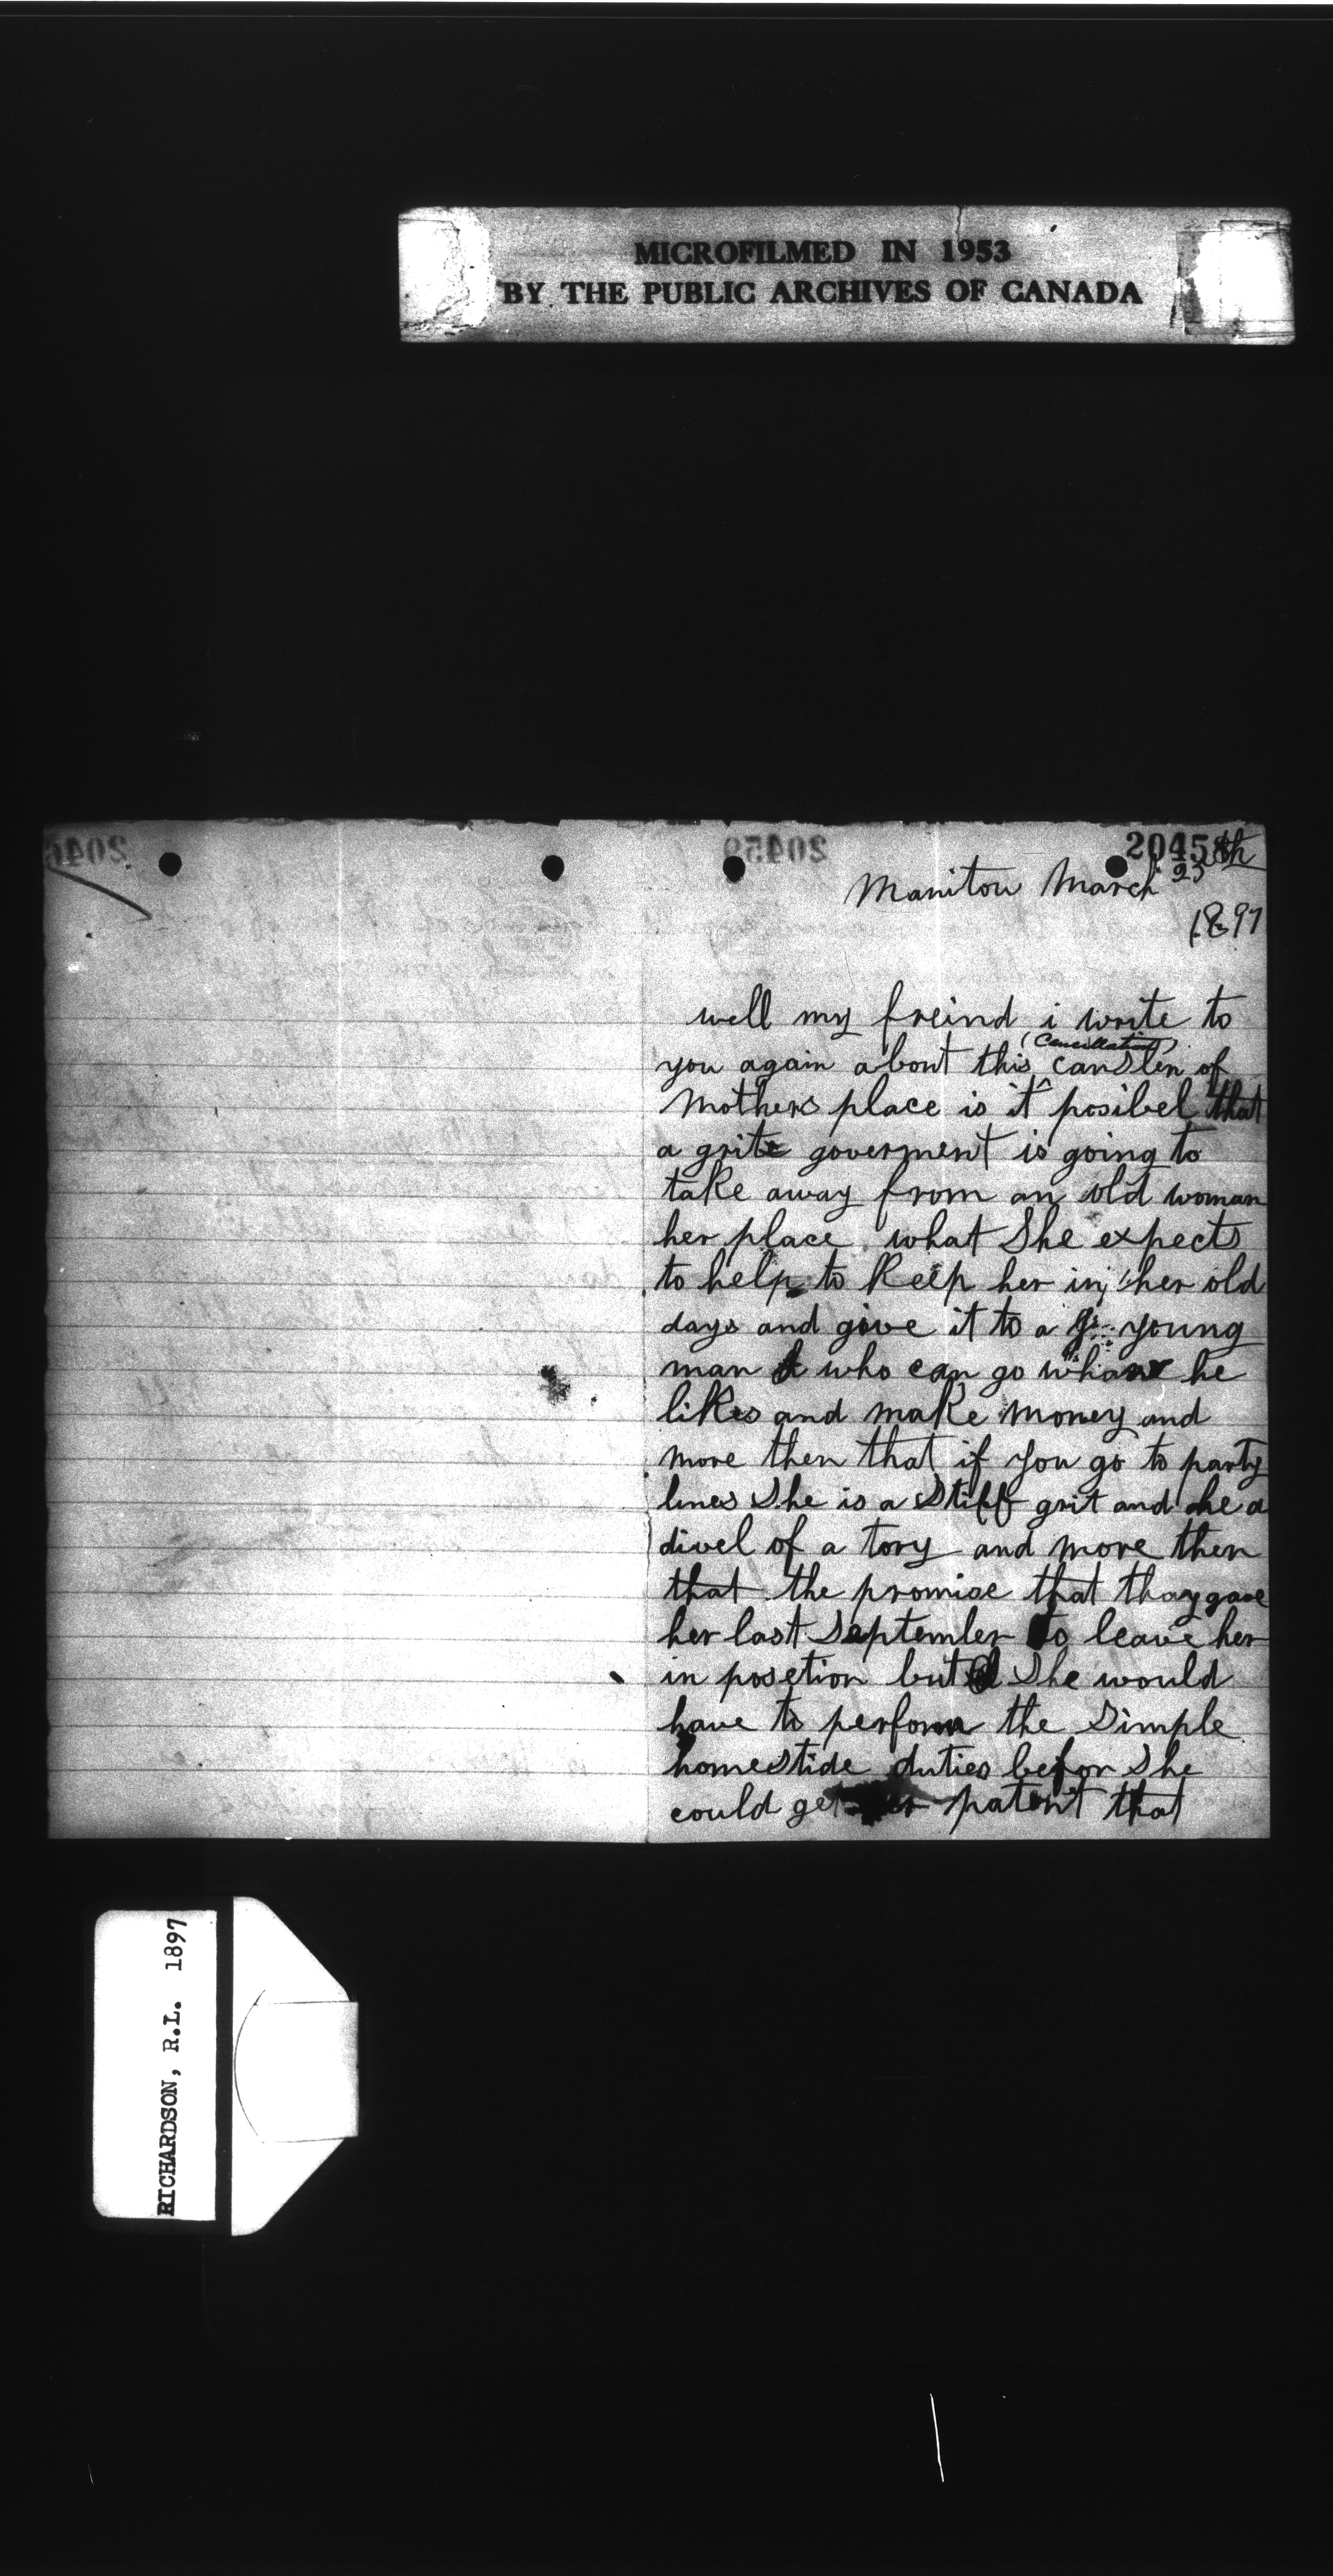 MICROFILMED IN 1953
BY THE PUBLIC ARCHIVES OF CANADA
20458
Manitou March 25th
1897
well my freind i write to
(Cancillation)
you again about this canslen of
Mothers place is it posibel that
a grite goverment is going to
take away from an old woman
her place what She expects
to help to Keep her in her old
days and give it to a young
man who can go whare he
likes and make money and
more then that if you go to party
lines She is a Stiff grit and he a
divel of a tory and more then
that the promise that thay gave
her last September to leave her
in posetion but She would
have to perform the Simple
homestide duties befor She
could get her patent that
RICHARDSON, R.L. 1897